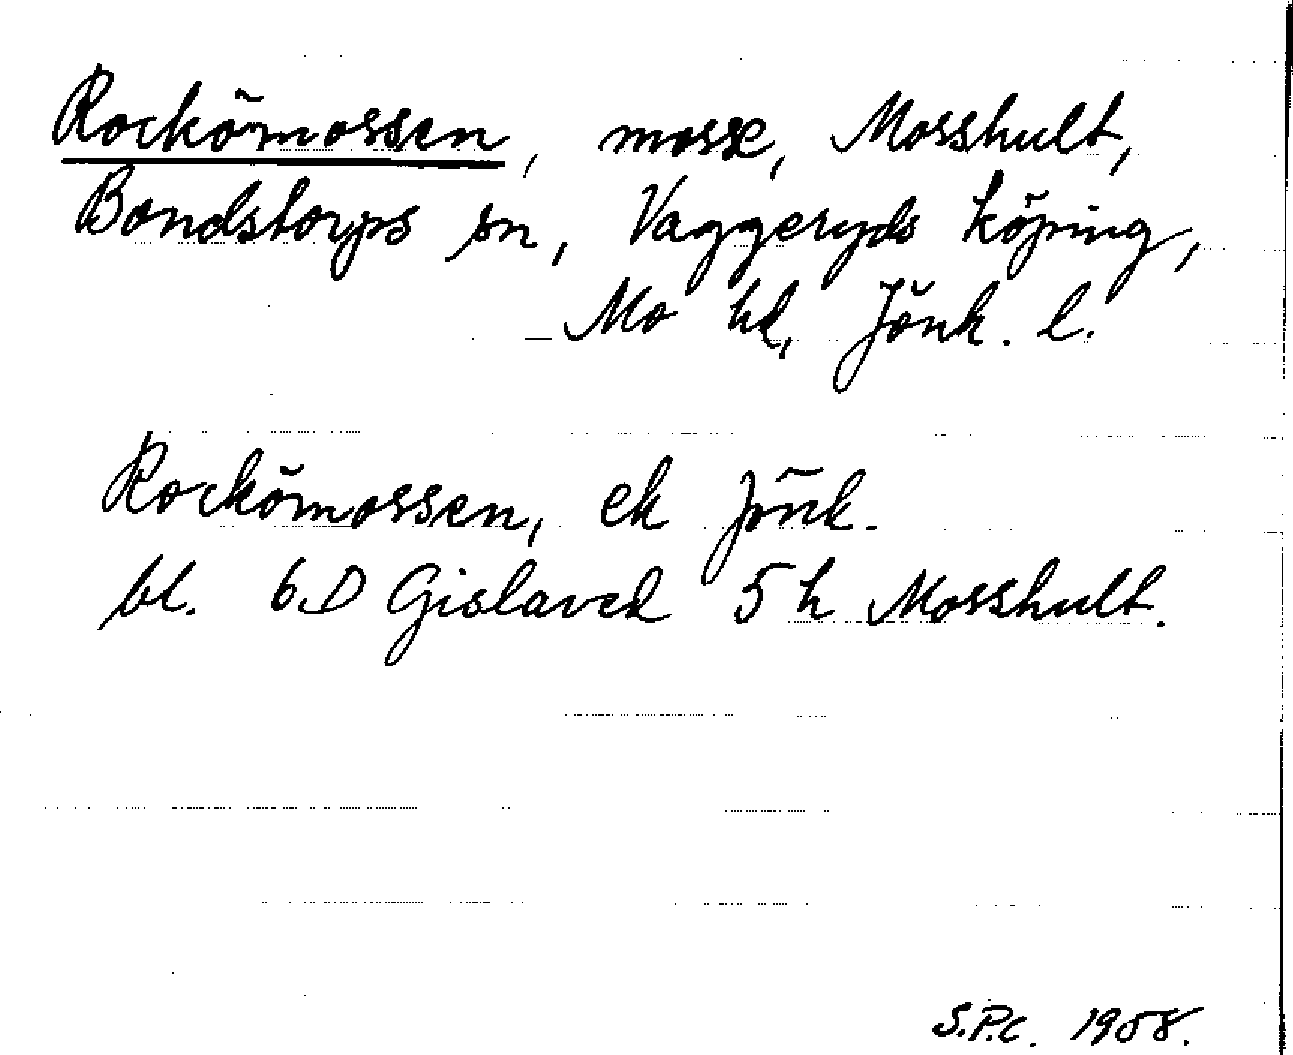 Rockömossen, mosse, Mosshult,
Bondstorps sn, Vaggeryds köping,
Mo hd, Jönk. l.
Rockömossen, ek Jönk.
bl. 6D Gislaved 5h Mosshult.
S.P.C. 1958.